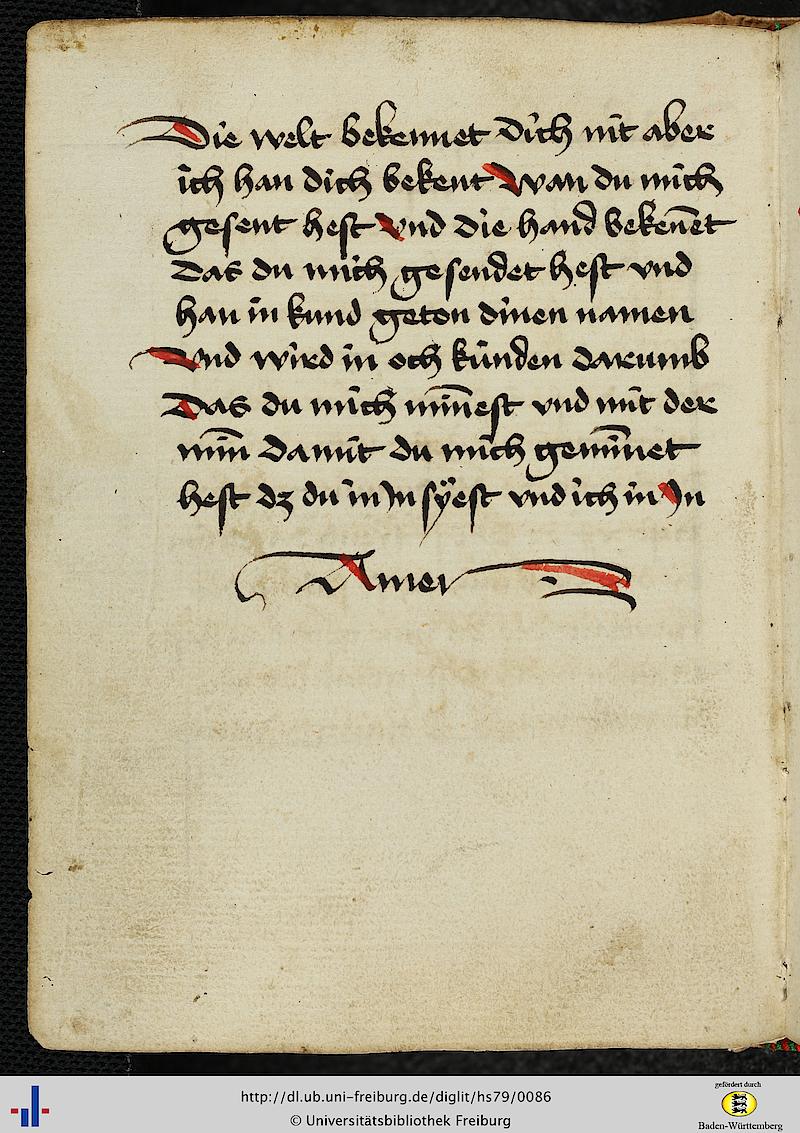 Die welt bekennet dich nit aber
ich han dich bekent Wan du mich
gesent hest Vnd die hand bekēnet
Das du mich gesendet hest vnd
han in kund geton dinen namen
Vnd wird in och kúnden darumb
Das du mich minnest vnd mit der
min̄ Damit du mich gemīnet
hest dz du in In sÿest vnd ich in In
Amen
http://dl.ub.uni-freiburg.de/diglit/hs79/0086
© Universitätsbibliothek Freiburg
gefördert durch
Baden-Württemberg